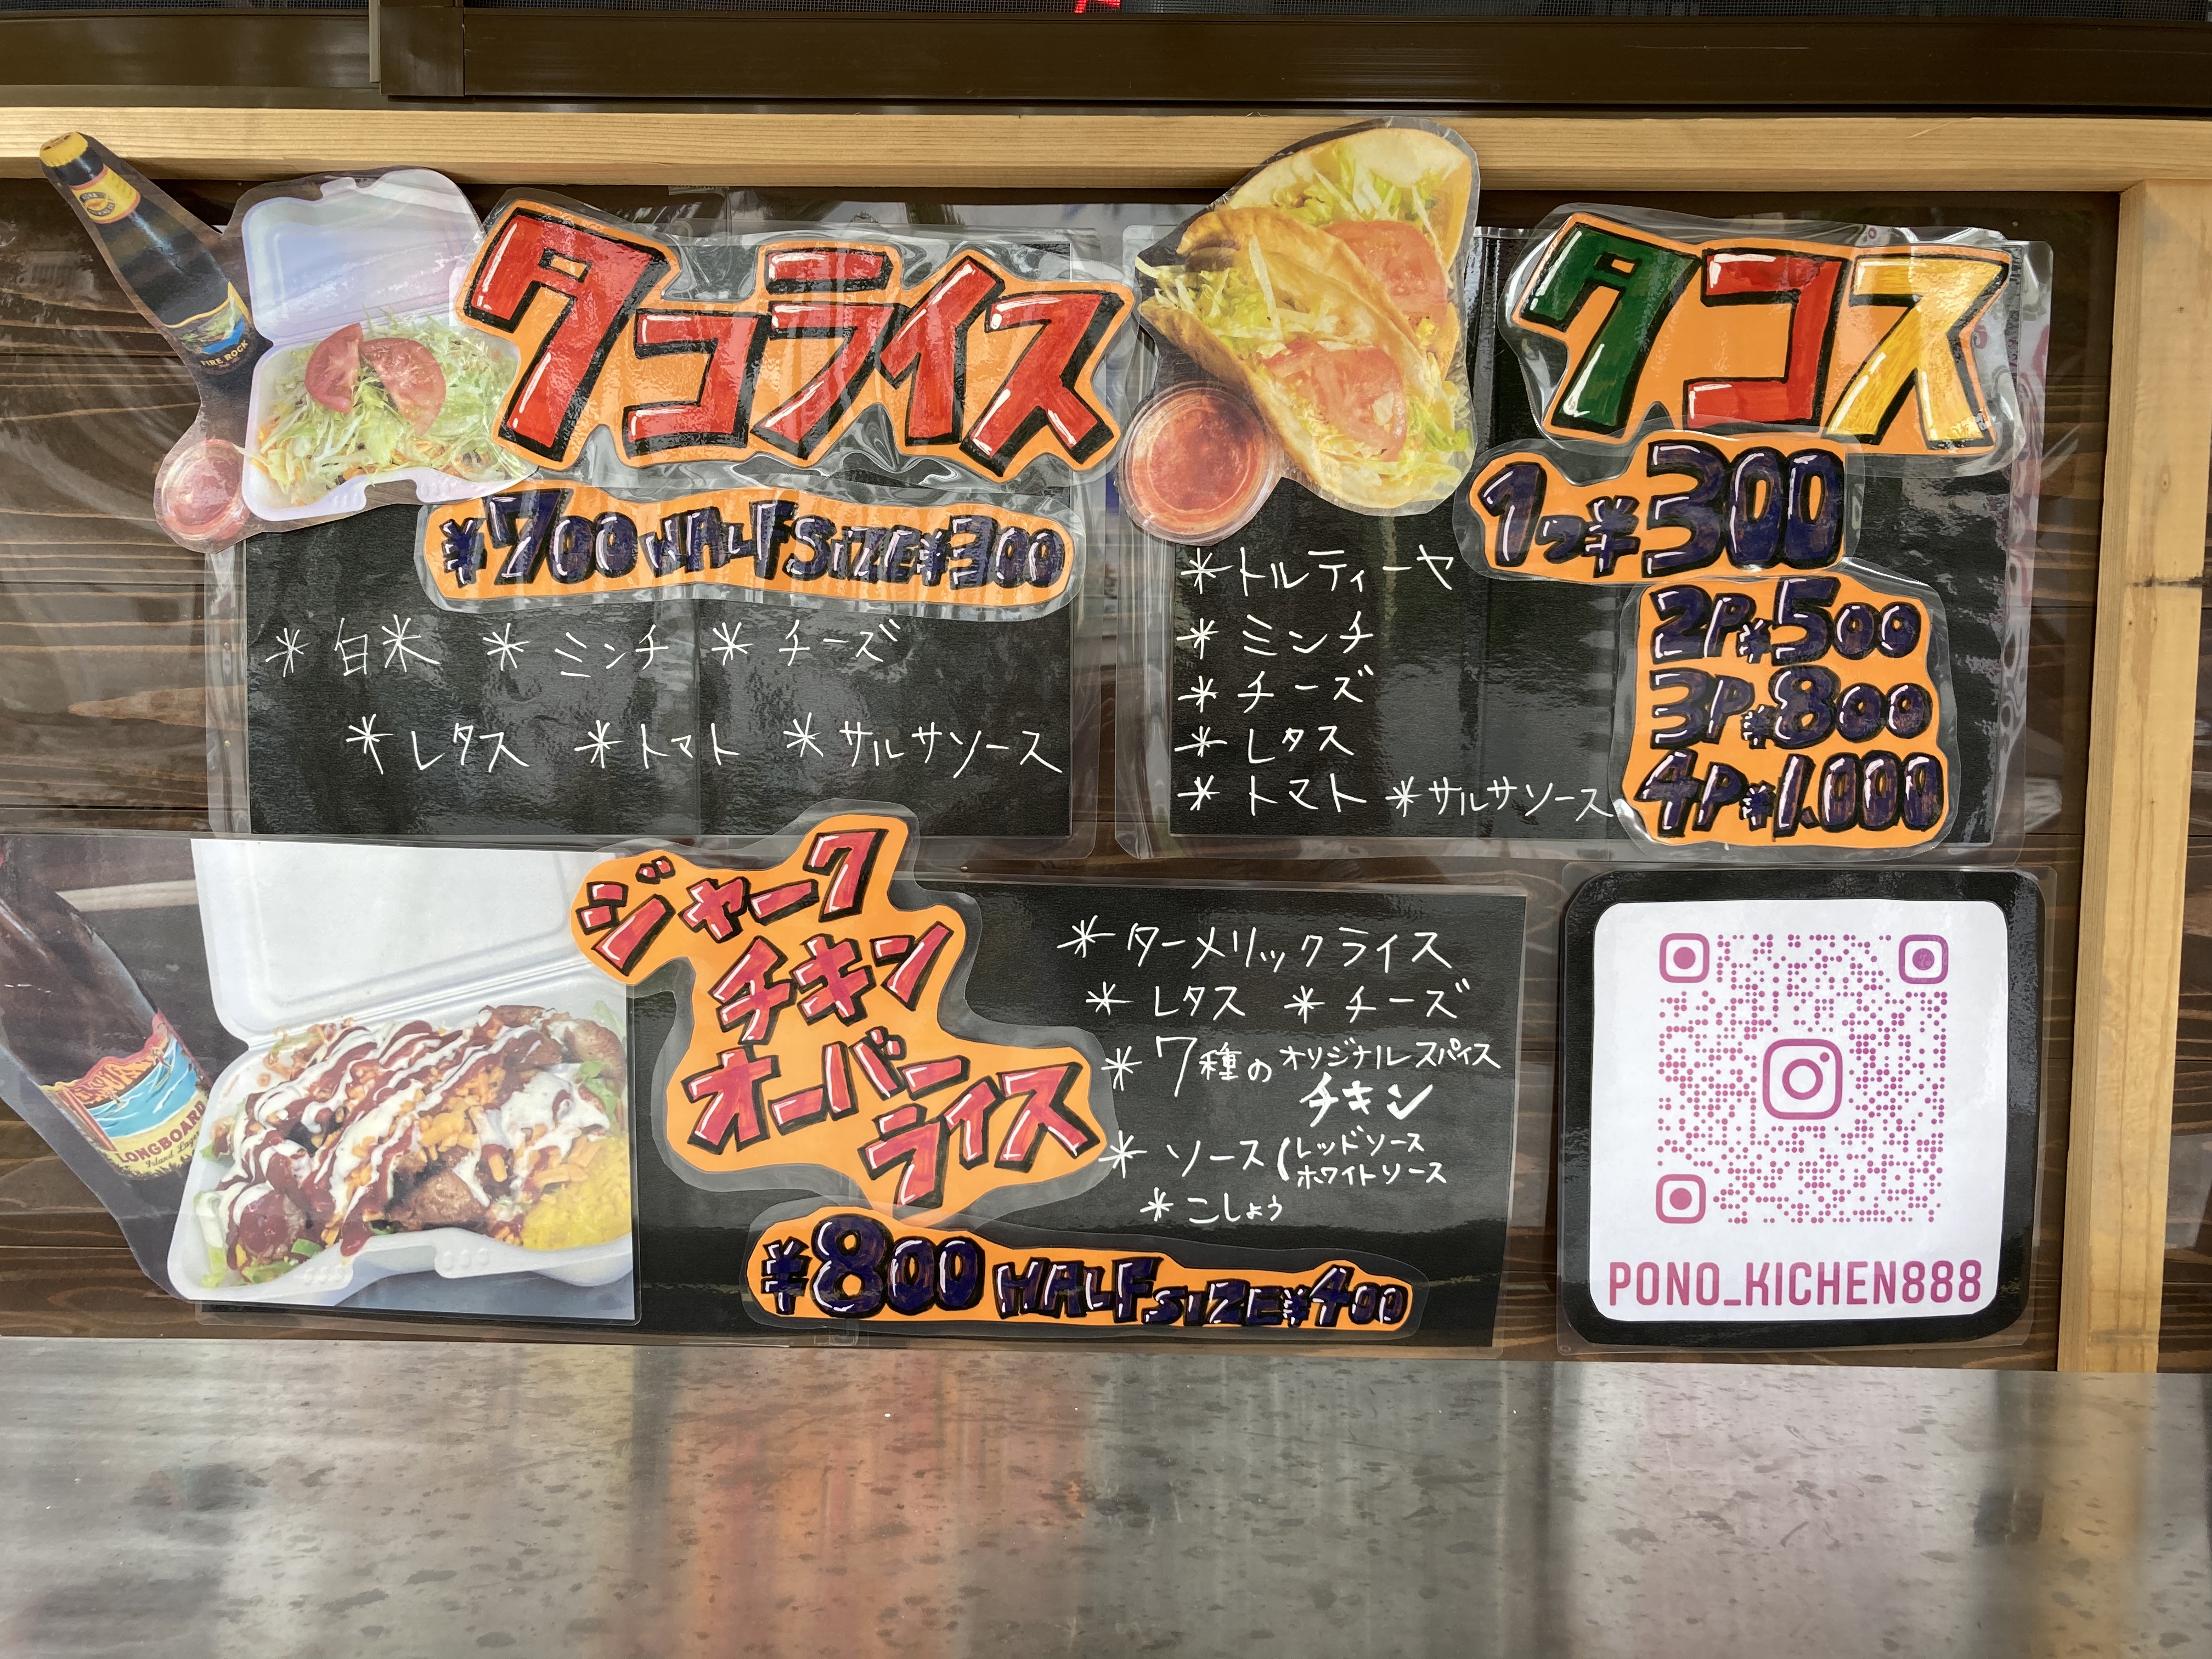 タコライス
¥700 HALF SIZE ¥300
* 白米 * ミンチ * チーズ
* レタス * トマト * サルサソース
FIRE ROCK
タコス
1つ¥300
2P¥500
3P¥800
4P¥1.000
* トルティーヤ
* ミンチ
* チーズ
* レタス
* トマト * サルサソース
ジャーク
チキン
オーバー
ライス
* ターメリックライス
* レタス * チーズ
* 7種のオリジナルスパイス
チキン
* ソース(レッドソース
ホワイトソース
* こしょう
¥800 HALF SIZE ¥400
LONGBOARD
Island Lager
PONO_KICHEN888